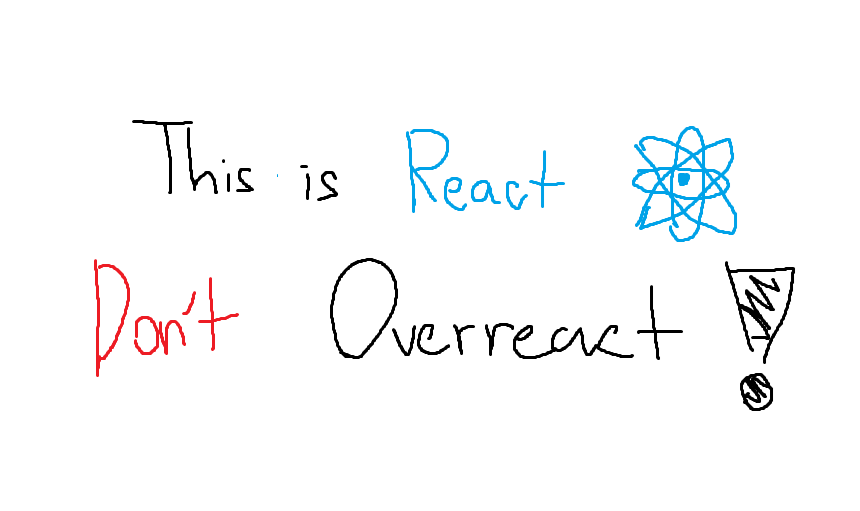 This is React
Don't Overreact!